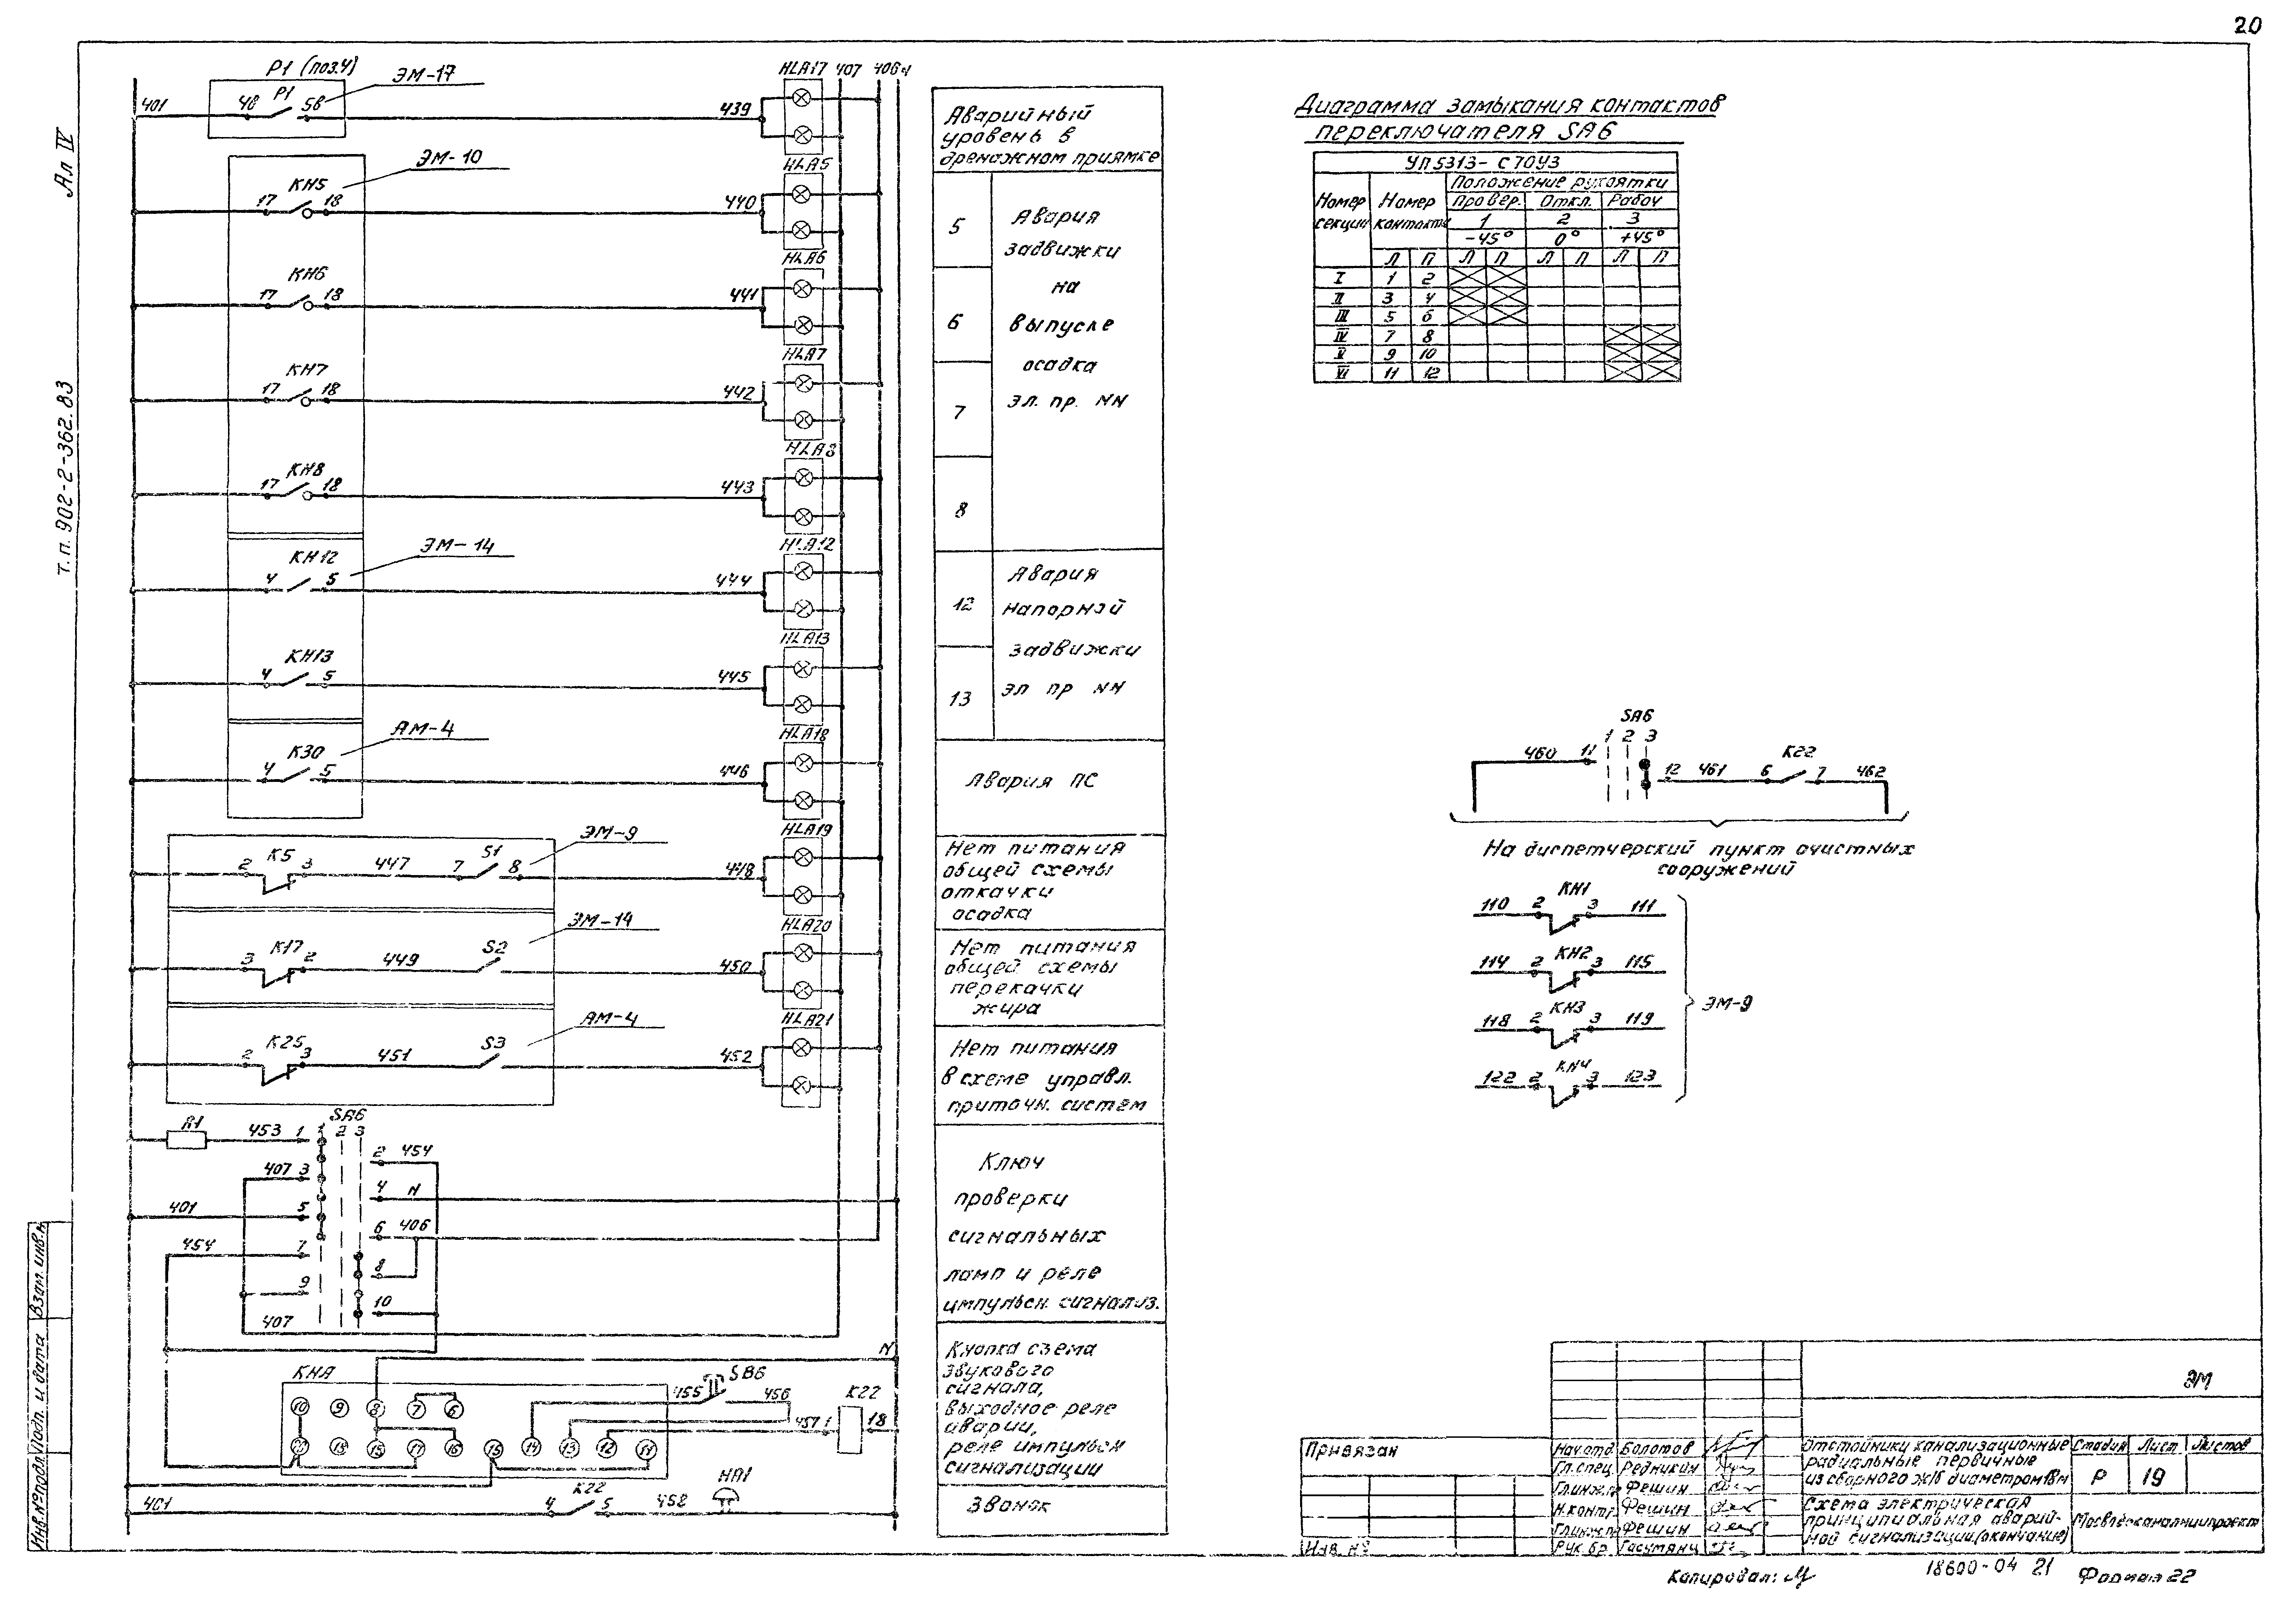 20
Ал IV
т.п. 902-2-362.83
Взам. инв.№
Подп. и дата
Инв.№ подл.
Р1 (поз.4)
ЭМ-17
401
4В Р1 5В
439
HLA17
407
406
N
ЭМ-10
КН5
17 18
440
HLA5
КН6
17 18
441
HLA6
КН7
17 18
442
HLA7
КН8
17 18
443
HLA8
ЭМ-14
КН12
4 5
444
HLA12
КН13
4 5
445
HLA13
АМ-4
К30
4 5
446
HLA18
ЭМ-9
2 К5 3
447
7 S1 8
448
HLA19
ЭМ-14
3 К17 2
449
S2
450
HLA20
АМ-4
2 К25 3
451
S3
452
HLA21
R1
453
1
SA6
1 2 3
2 454
407 3
4 N
401
5
6 406
454
7
8
9
10
407
N
КНА
10 9 8 7 6
20 18 15 17 16 15 14 13 12 11
455
SB6
456
457 1
К22
18
401
4 К22 5
458
НА1
Аварийный
уровень в
дренажном приямке
5
6
7
8
Авария
задвижки
на
выпуске
осадка
эл. пр. NN
12
13
Авария
напорной
задвижки
эл пр NN
Авария ПС
Нет питания
общей схемы
откачки
осадка
Нет питания
общей схемы
перекачки
жира
Нет питания
в схеме управл.
приточн. систем
Ключ
проверки
сигнальных
ламп и реле
импульсн. сигнализ.
Кнопка съема
звукового
сигнала,
выходное реле
аварии,
реле импульсн
сигнализации
Звонок
Диаграмма замыкания контактов
переключателя SA6
УП5313-С70У3
Номер секции
Номер контакта
Положение рукоятки
Провер. Откл. Рабоч
1 2 3
-45° 0° +45°
Л П Л П Л П Л П
I 1 2
II 3 4
III 5 6
IV 7 8
V 9 10
VI 11 12
SA6
1 2 3
460 11
12 461 6 К22 7 462
На диспетчерский пункт очистных
сооружений
110 2 КН1 3 111
114 2 КН2 3 115
118 2 КН3 3 119
122 2 КН4 3 123
ЭМ-9
Привязан
Инв. №
Нач.отд. Болотов
Гл.спец. Редникин
Гл.инж.пр Фешин
Н.контр. Фешин
Гл.инж.пр Фешин
Рук.бр. Гасумянц
ЭМ
Отстойники канализационные
радиальные первичные
из сборного ж/б диаметром 18м
Стадия Лист Листов
Р 19
Схема электрическая
принципиальная аварий-
ной сигнализации.(окончание)
Мосводоканалниипроект
Копировал:
18600-04 21
Формат 22